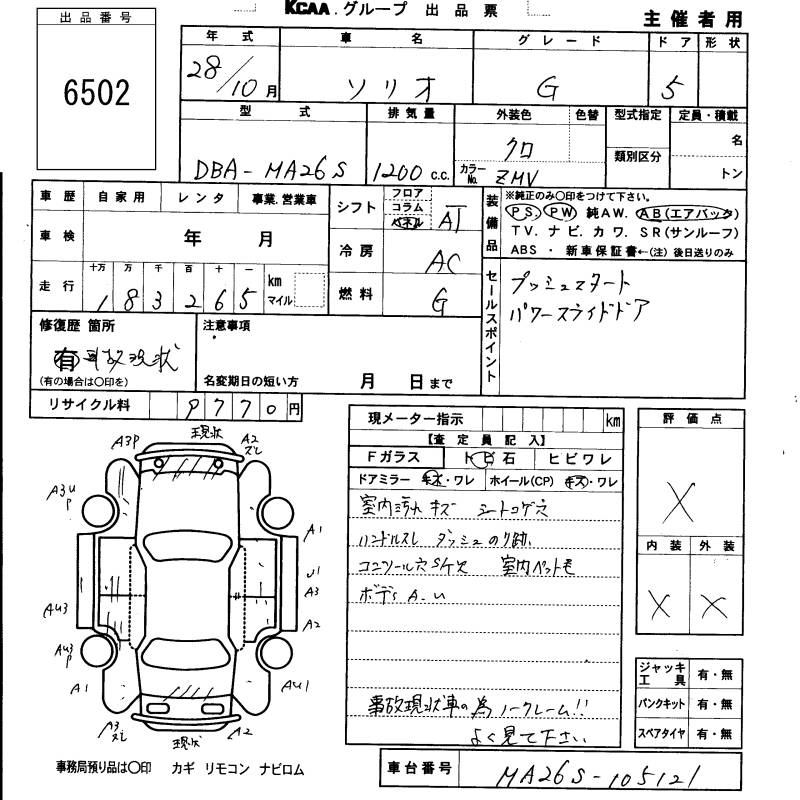 KCAA.グループ 出品票
主催者用
出品番号
6502
年式 車名 グレード ドア 形状
28/10月 ソリオ G 5
型式 排気量 外装色 色替 型式指定 定員・積載
DBA-MA26S 1200 c.c. クロ カラーNo. ZMV 類別区分 名 トン
車歴 自家用 レンタ 事業.営業車
車検 年 月
走行 十万 万 千 百 十 一 km マイル
183265
シフト フロア コラム パネル AT
冷房 AC
燃料 G
装備品 ※純正のみ〇印をつけて下さい。
PS. PW 純AW. AB(エアバック)
TV. ナビ. カワ. SR(サンルーフ)
ABS ・ 新車保証書←(注) 後日送りのみ
セールスポイント
プッシュスタート
パワースライドドア
修復歴 箇所
有 事故現状
(有の場合は〇印を)
注意事項
名変期日の短い方 月 日まで
リサイクル料 9770円
現メーター指示 km
【査定員記入】
Fガラス トビ石 ヒビワレ
ドアミラー キズ・ワレ ホイール(CP) キズ・ワレ
室内汚れ キズ シートコゲ穴
ハンドルスレ ダッシュのり跡
コンソール穴SK欠 室内ペット毛
ボデーS A.U
事故現状車の為ノークレーム!!
よく見て下さい.
評価点
X
内装 外装
X X
ジャッキ工具 有・無
パンクキット 有・無
スペアタイヤ 有・無
現状
A3P
A2
ズレ
A3U
P
A1
U1
A3
AU3
A2
AU3
P
A1
AU1
A3
ズレ
A2
現状
事務局預り品は〇印 カギ リモコン ナビロム
車台番号 MA26S-105121